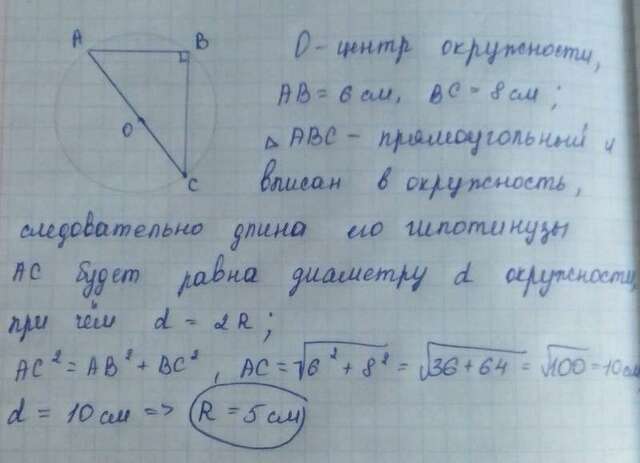 A B O C
O - центр окружности,
AB = 6 см, BC = 8 см;
△ ABC - прямоугольный и
вписан в окружность,
следовательно длина его гипотинузы
AC будет равна диаметру d окружности,
при чём d = 2R;
AC² = AB² + BC², AC = √6² + 8² = √36 + 64 = √100 = 10 см
d = 10 см => R = 5 см